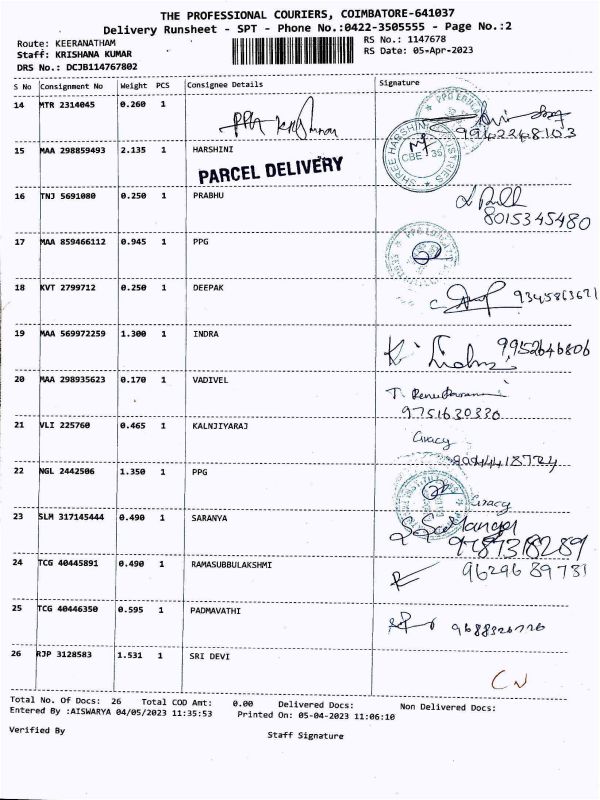 THE PROFESSIONAL COURIERS, COIMBATORE-641037
Delivery Runsheet - SPT - Phone No.:0422-3505555 - Page No.:2
Route: KEERANATHAM RS No.: 1147678
Staff: KRISHANA KUMAR RS Date: 05-Apr-2023
DRS No.: DCJB114767802
S No Consignment No Weight PCS Consignee Details Signature
14 MTR 2314045 0.260 1
9942248103
15 MAA 298859493 2.135 1 HARSHINI
SHREE HARSHINI INDUSTRIES CBE 35
PARCEL DELIVERY
16 TNJ 5691080 0.250 1 PRABHU
8015345480
17 MAA 859466112 0.945 1 PPG
18 KVT 2799712 0.250 1 DEEPAK
19 MAA 569972259 1.300 1 INDRA
9952646806
20 MAA 298935623 0.170 1 VADIVEL
9751630330
21 VLI 225760 0.465 1 KALNJIYARAJ
22 NGL 2442506 1.350 1 PPG
23 SLM 317145444 0.490 1 SARANYA
9787318289
24 TCG 40445891 0.490 1 RAMASUBBULAKSHMI
9629689731
25 TCG 40446350 0.595 1 PADMAVATHI
26 RJP 3128583 1.531 1 SRI DEVI
Total No. Of Docs: 26 Total COD Amt: 0.00 Delivered Docs: Non Delivered Docs:
Entered By :AISWARYA 04/05/2023 11:35:53 Printed On: 05-04-2023 11:06:10
Verified By Staff Signature